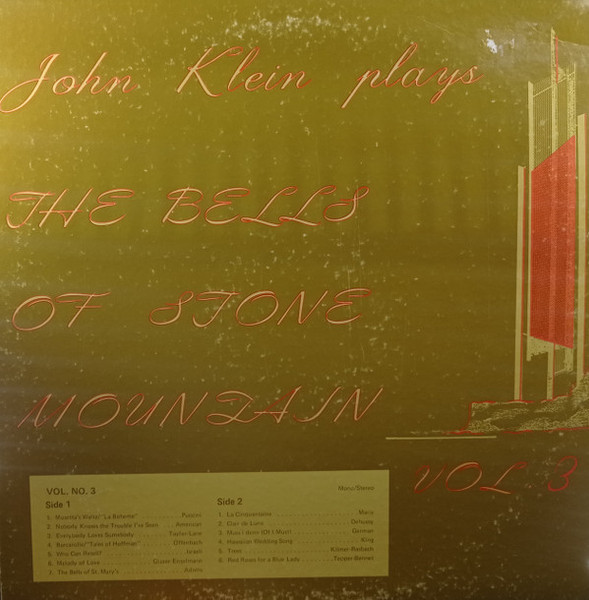 John Klein plays
THE BELLS
OF STONE
MOUNTAIN
VOL 3
VOL. NO. 3
Mono/Stereo
Side 1
1. Musetta's Waltz/"La Boheme" Puccini
2. Nobody Knows the Trouble I've Seen American
3. Everybody Loves Somebody Taylor-Lane
4. Barcarolle/"Tales of Hoffman" Offenbach
5. Who Can Retell?
6. Melody of Love
7. The Bells of St. Mary's Adams
Side 2
1. La Cinquantaine Marie
2. Clair de Lune Debussy
3. Must I
4. Hawaiian Wedding Song King
5. Trees Kilmer-Rasbach
6. Red Roses for a Blue Lady Tepper-Bennett